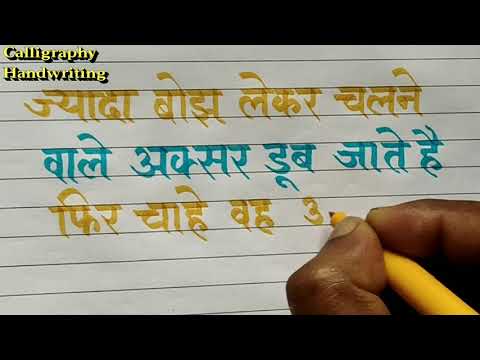 Calligraphy
Handwriting
ज्यादा बोझ लेकर चलने
वाले अक्सर डूब जाते है
फिर चाहे वह